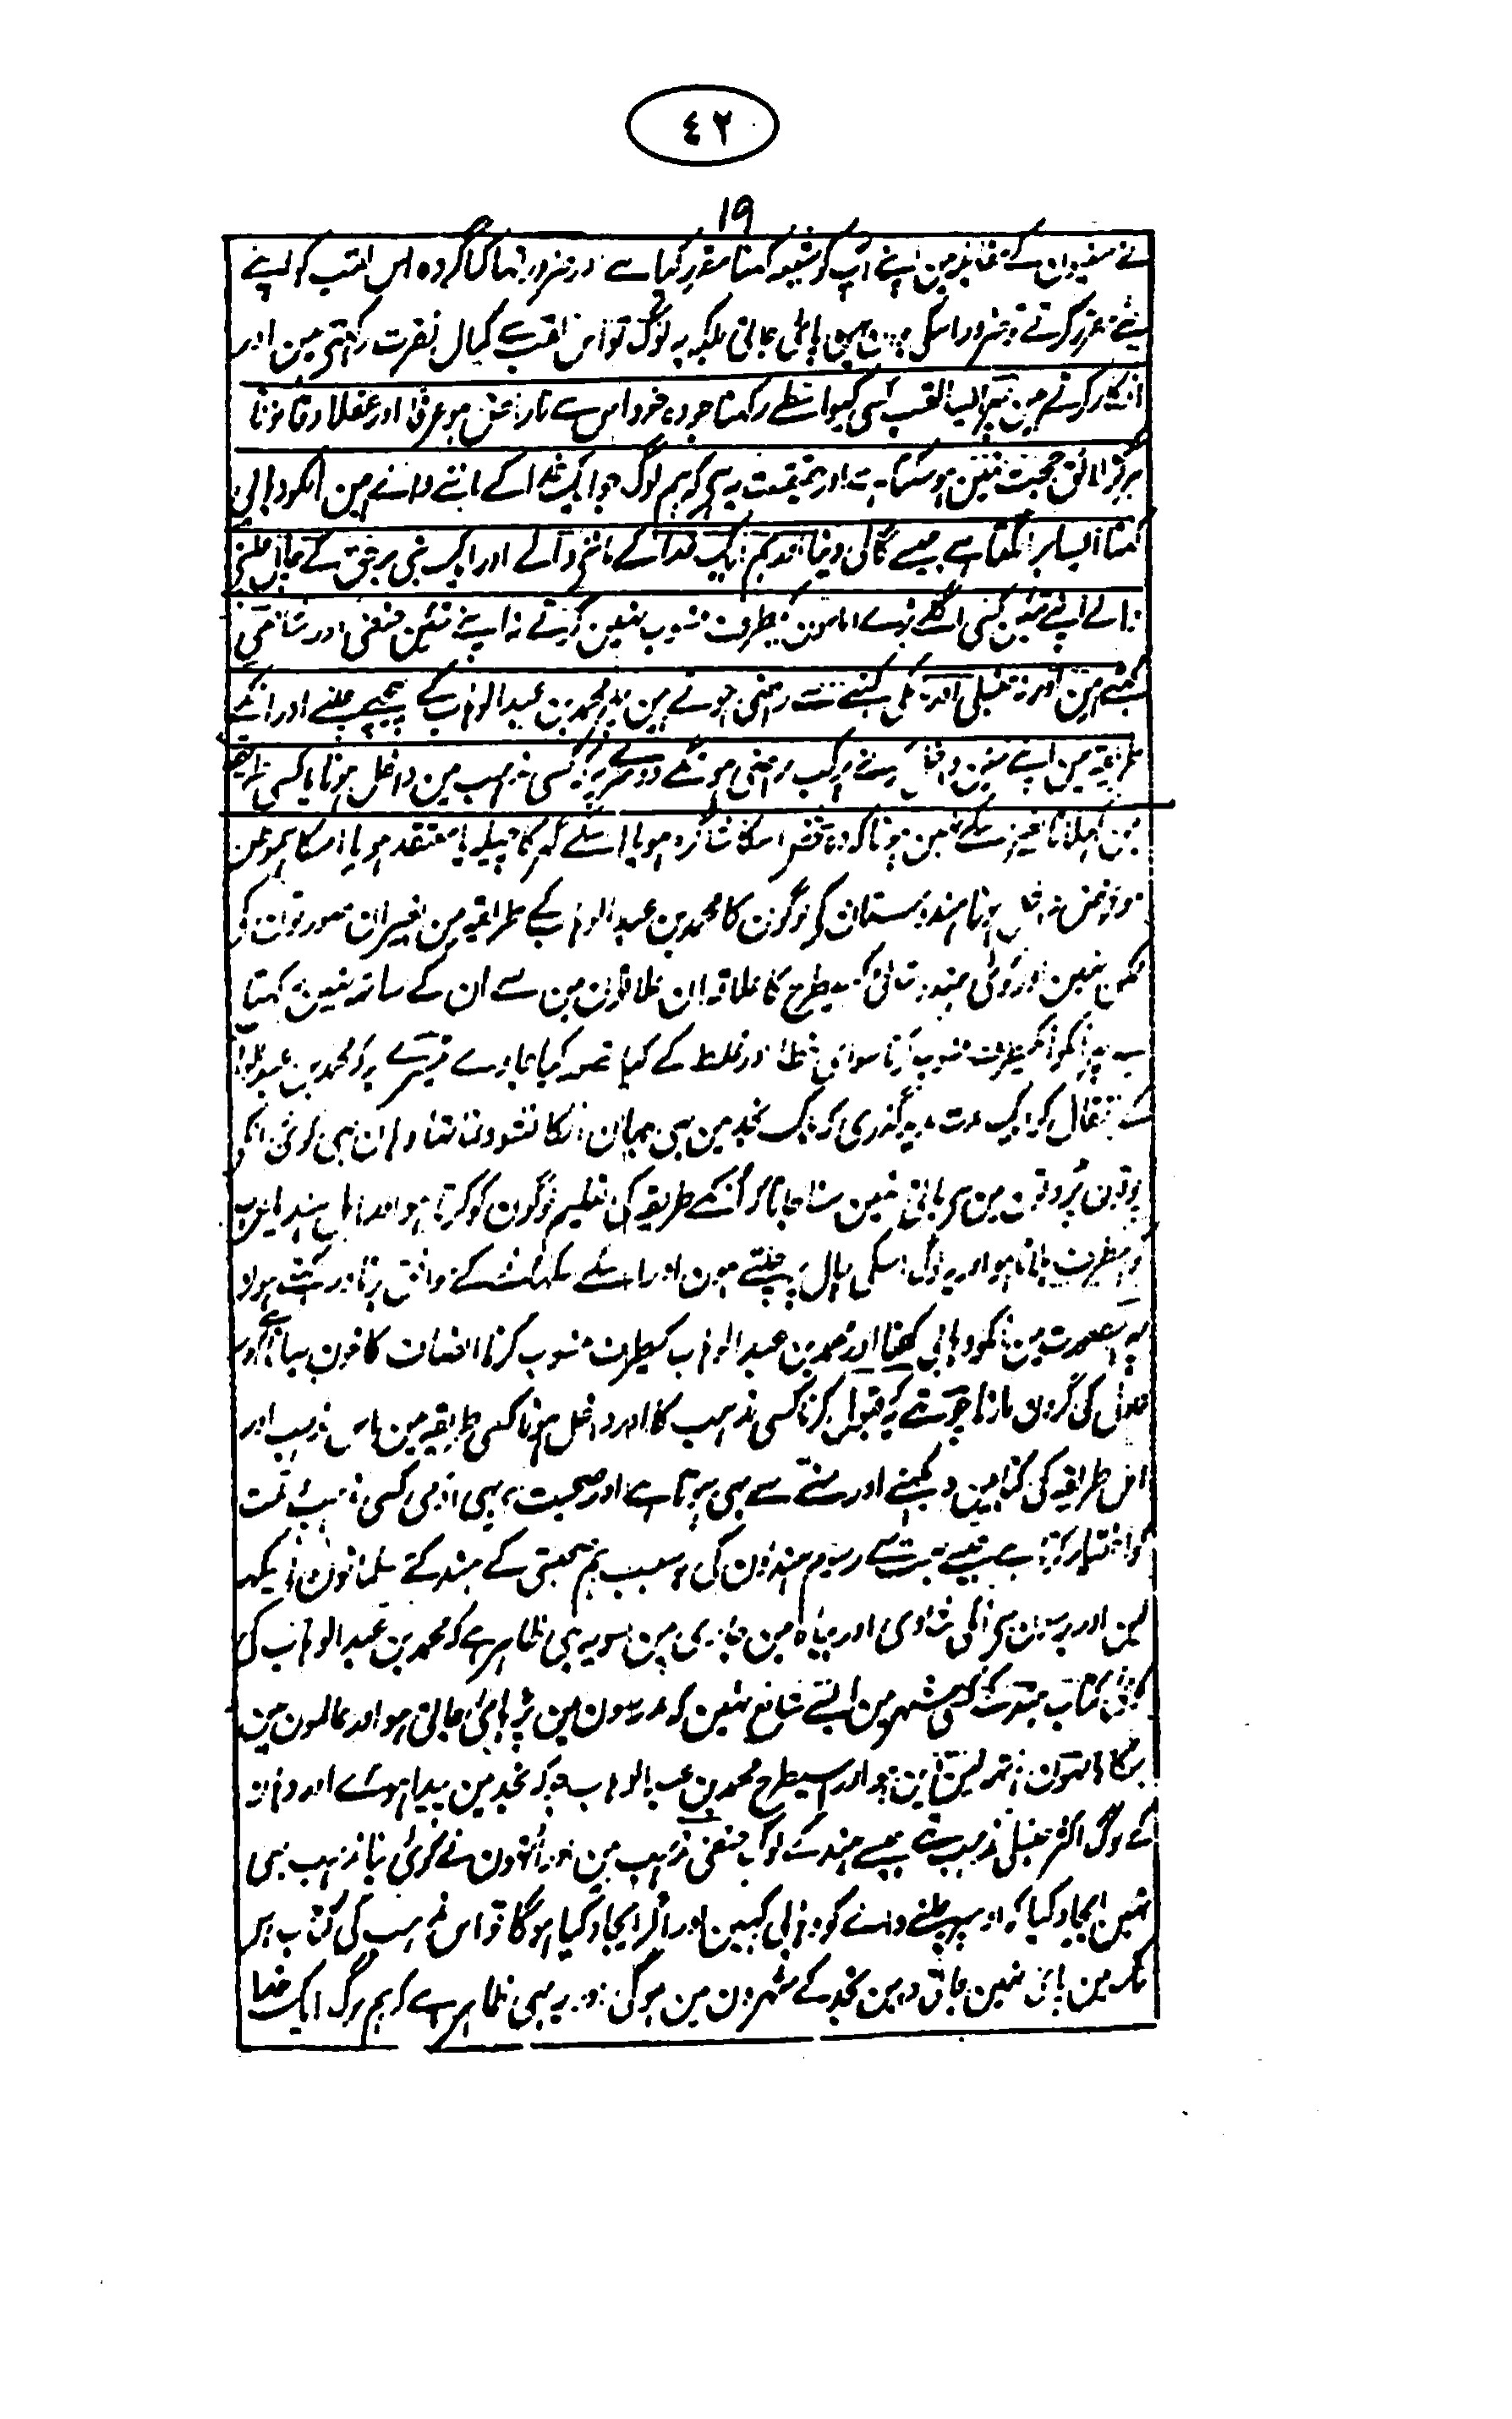 ٤٢
١٩
نے سنیون کے مقابلہ مین اپنے آپ کو شیعہ کہنا مقرر کیا ہے اور ضرور تہا کہ اگر وہ اس لقب کو اپنے
لیے مقرر کرتے تو ضرور اسکی پائی جاتی بلکہ یہ لوگ تو اس لقب سے کمال نفرت رکہتے ہین اور
انکار کرتے ہین پہر ایسا لقب کسی کیواسطے رکہنا جو وہ خود اس سے ناراض ہو عرفا اور عقلا و قانونا
ہرگز لائق حجت نہین ہو سکتا ہے اور حقیقت یہ ہے کہ ہم لوگ جو ایک خدا کے ماننے والے ہین انکو وہابی
کہنا ایسا برا لگتا ہے جیسے گالی دینا ہم ایک خدا کے ماننے والے اور ایک نبی برحق کے چال چلنے
والے اپنے تئین کسی اگلے بڑے امامون کیطرف منسوب نہین کرتے نہ اپنے تئین حنفی اور شافعی
کہتے ہین اور نہ حنبلی اور مالکی کہنے سے راضی ہوتے ہین پہر محمد بن عبدالوہاب کے پیچھے چلنے اور انکے
طریقہ مین اپنے تئین داخل کرنے پر کب راضی ہونگے دوسرے یہ کہ کسی مذہب مین داخل ہونا یا کسی طریقہ
مین کہلانا بغیر اسکے نہین ہوتا کہ وہ شخص اسکا شاگرد ہو یا اسکے گہر کا چیلہ یا معتقد ہو یا اسکا ہموطن
ہو داخل ہونا ہندوستان کے لوگون کا محمد بن عبدالوہاب کے طریقہ مین بغیر ان صورتون کے
ممکن نہین اور کوئی ہندوستانی کسیطرح کا علاقہ ان علاقون مین سے ان کے ساتھ نہین رکہتا
ہے پہر انکو انکیطرف منسوب کرنا سوائے خطا اور غلط کے کیا تصور کیا جاوے تیسرے یہ کہ محمد بن عبدالوہاب
کے انتقال کو ایک مدت گذری کہ ملک نجد مین بہی جہان انکا نشوونما تہا وہان بہی کوئی انکے
پوتون پڑوتون مین سے باقی نہین سنا جاتا کہ انکے طریقہ کی تعلیم لوگون کو کرتا ہو اور اہل ہند
اسطرف جاتا ہو اور یہ لوگ اسکی چال پر چلتے ہون اور اسکے کے موافق برتاو رکہتے ہون
پہر اسصورت مین انکو وہابی کہنا اور محمد بن عبدالوہاب کیطرف منسوب کرنا انصاف کا خون بہانا ہے اور
عدل کی گردن مارنا چوتھے یہ کہ قبول کرنا کسی مذہب کا اور داخل ہونا کسی طریقہ مین اس مذہب اور
اس طریقہ کی کتابین دیکہنے اور سننے سے بہی ہوتا ہے اور صحبت سے بہی آدمی کسی مذہب و ملت
کو اختیار کرتا ہے جیسے بہت سے رسوم ہندوون کی بسبب ہم صحبتی کے ہند کے مسلمانون نے سیکہہ
لین اور یہ رسمین انکی شادی اور بیاہ مین جاری ہین سو یہ بہی ظاہر ہے کہ محمد بن عبدالوہاب کی
کوئی کتاب ہند کے کسی شہر مین ایسے شائع نہین کہ مدرسون مین پڑہائی جاتی ہو اور عالمون مین
ہاتہون ہاتہہ لین دین ہو اور اسیطرح محمد بن عبدالوہاب جو کہ نجد مین پیدا ہوئے اور وہان
کے لوگ اکثر حنبلی مذہب تہے جیسے ہند کے لوگ حنفی مذہب ہین اور انہون نے کوئی نیا مذہب بہی
نہین ایجاد کیا کہ اوسپر چلنے والے کو وہابی کہین اور اگر ایجاد کیا ہوگا تو اس مذہب کی کتاب ہر
ملک مین پائی نہین جاتی وہین نجد کے شہرون مین ہوگی اور یہ بہی ظاہر ہے کہ ہم لوگ ایک خدا